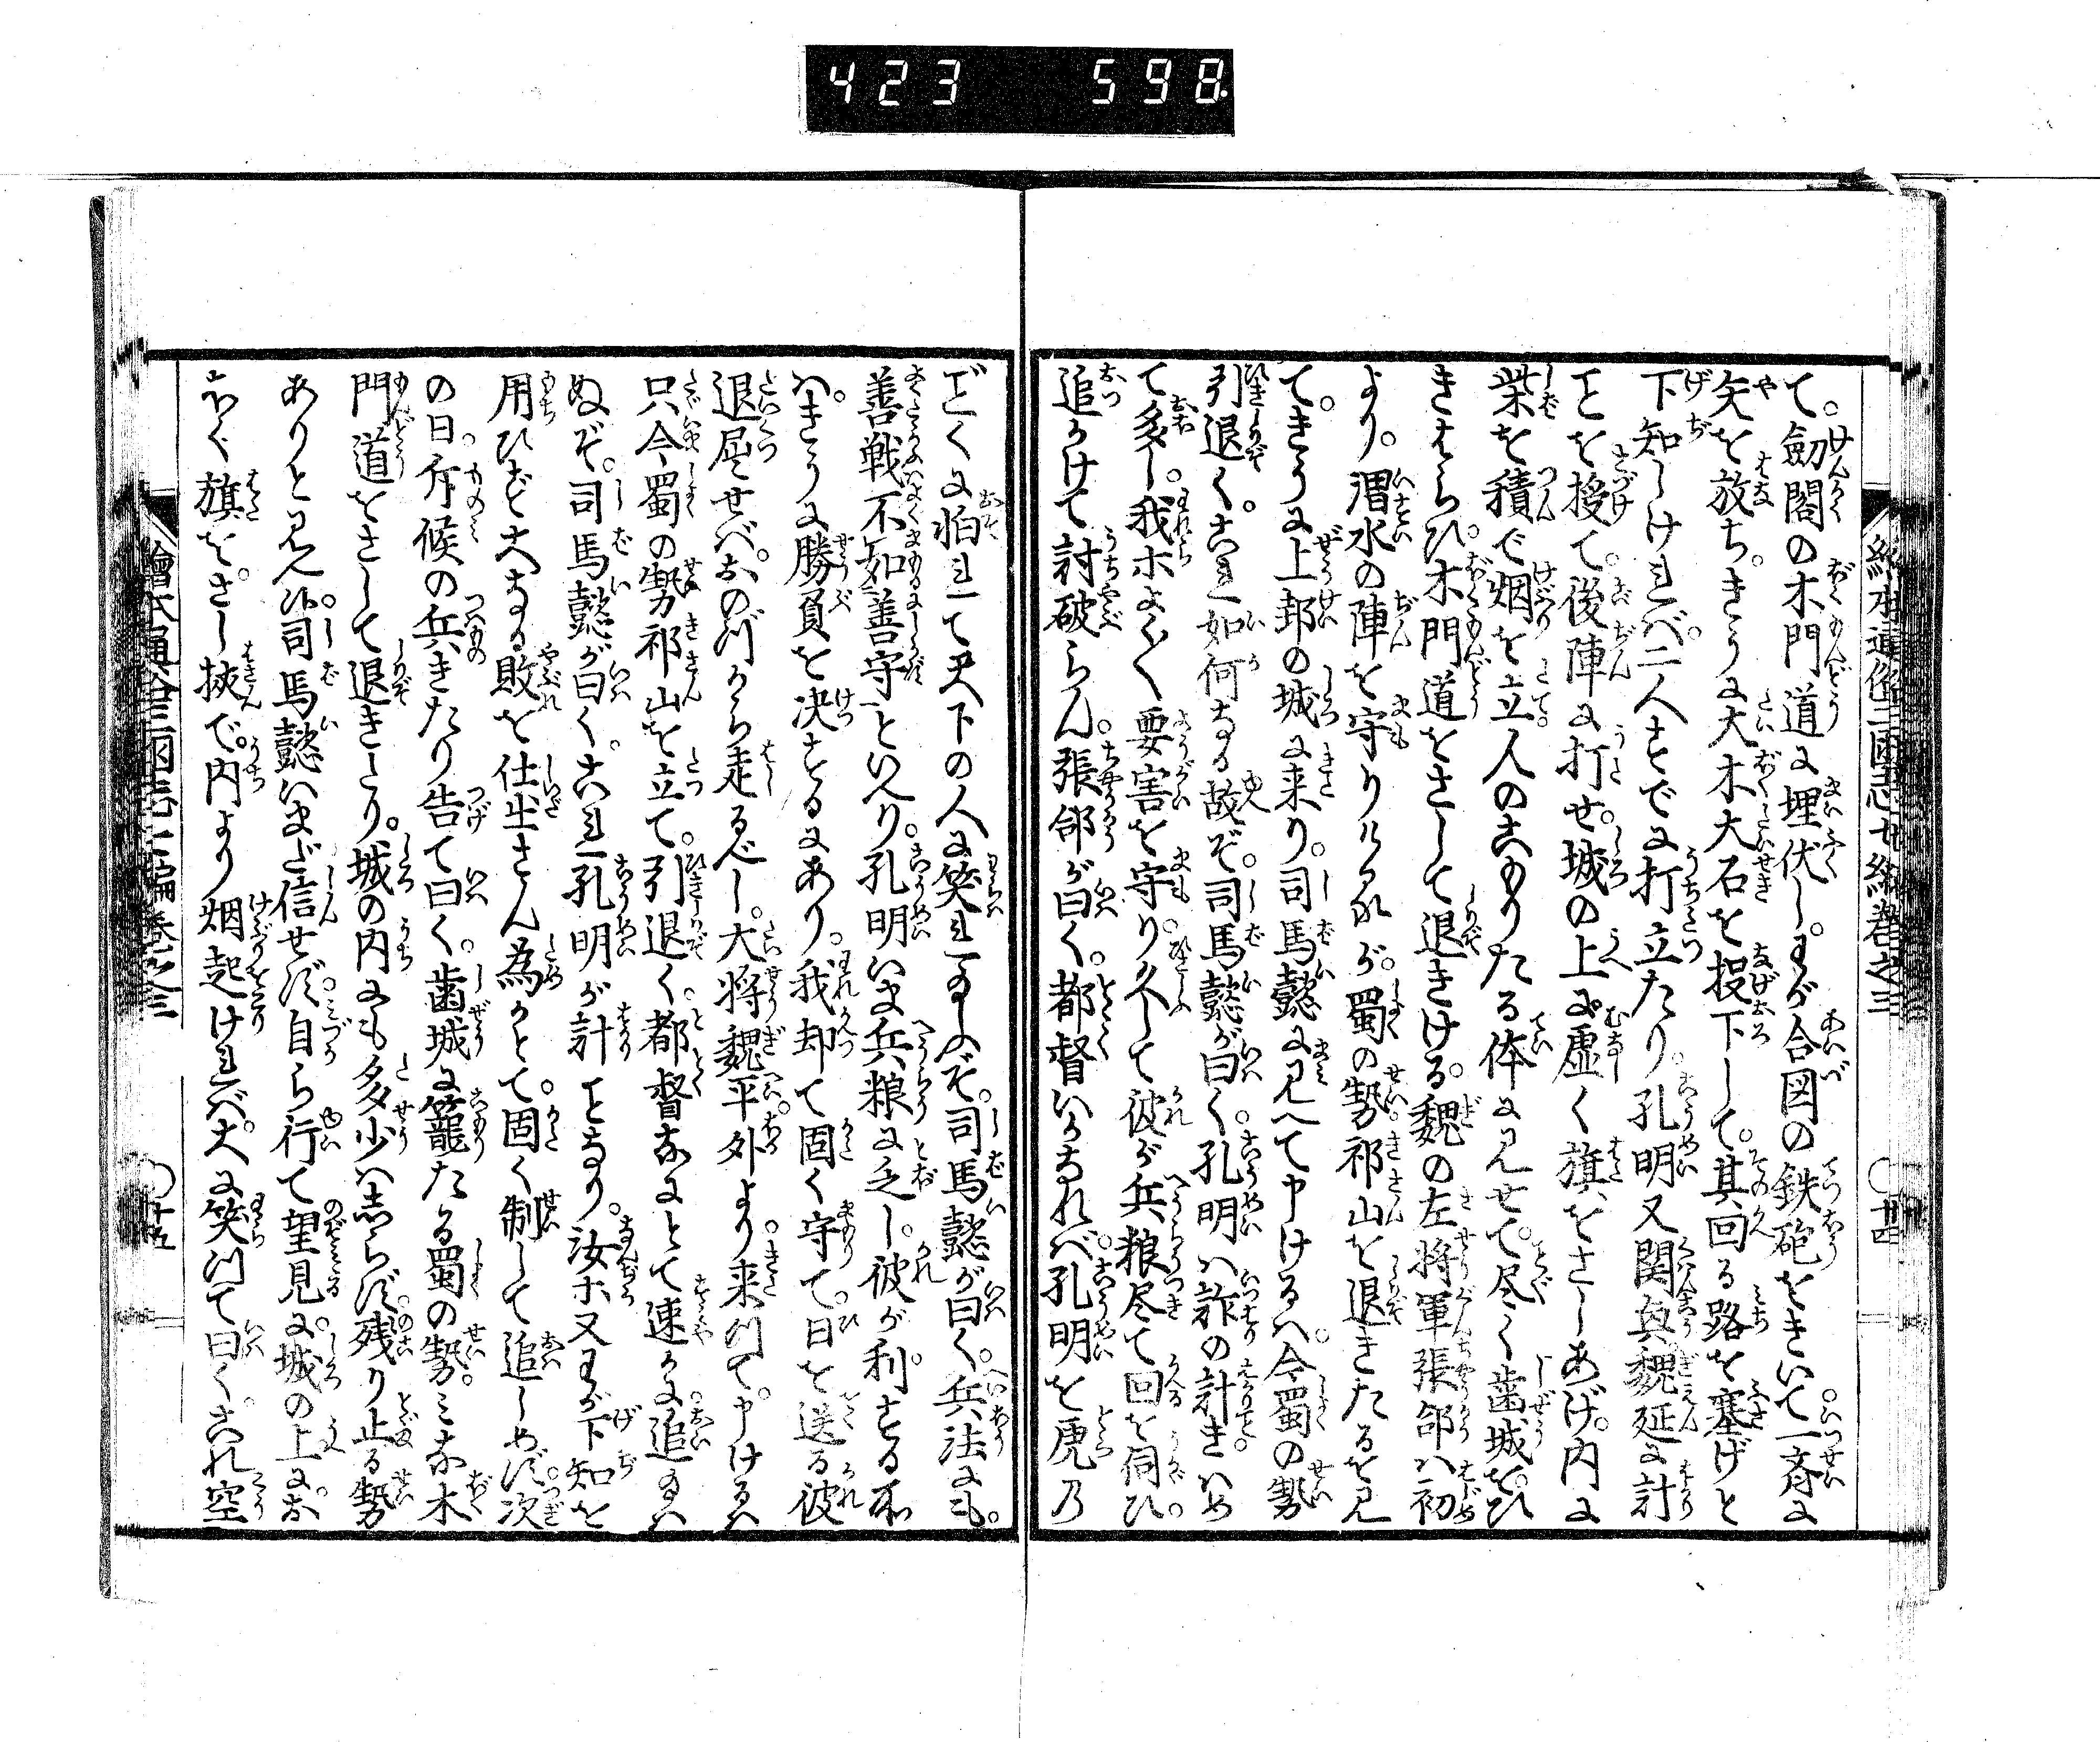 423 598
て。劔閣の木門道に埋伏し。わが合図の鉄砲をきいて。一斉に
矢を放ち。きうに大木大石を投下して。其回る路を塞げと
下知しければ。二人すでに打立たり。孔明又関興魏延に計
ことを授て。後陣に打せ。城の上に虚く旗をさしあげ。内に
柴を積で烟を立。人のこもりたる体に見せて。尽く歯城をひ
きはらひ。木門道をさして退きける。魏の左将軍張郃ハ初
より。渭水の陣を守りけるが。蜀の勢。祁山を退きたるを見
て。きうに上邽の城に来り。司馬懿に見へて申けるハ。今蜀の勢
引退く。これ如何なる故ぞ。司馬懿が曰く。孔明ハ詐の計きはめ
て多し。我ホよく〱要害を守り。久して彼が兵粮尽て回を伺ひ。
追かけて討破らん。張郃が曰く。都督いかなれば。孔明を虎の
ごとくに怕れて天下の人に笑れ玉ふぞ。司馬懿が曰く。兵法にも。
善戦不如善守といへり。孔明いま兵粮に乏し。彼が利。する所
ハ。きうに勝負を決するにあり。我却て固く守て。日を送る彼
退屈せば。おのづから走るべし。大将魏平外より。来つて。申けるハ
只今蜀の勢祁山を立て。引退く。都督なにとて速に。追玉ハ
ぬぞ。司馬懿が曰く。これ孔明が計ことなり。汝ホ又わが下知を
用ひず大なる敗を仕出さん為かとて。固く制して追しめず。次
の日。斥候の兵きたり告て曰く。歯城に籠たる蜀の勢。ミな木
門道をさして退きたり。城の内にも多少ハしらず。残り止る勢
ありと見へ候。司馬懿いまだ信せず。自ら行て望見に。城の上に。お
ほく旗を。さし挟で。内より烟起ければ。大に笑つて曰く。これ空